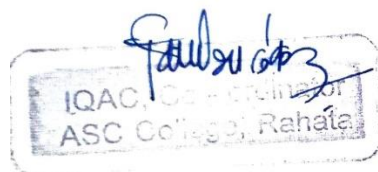 IQAC, Co-ordinator
ASC College, Rahata